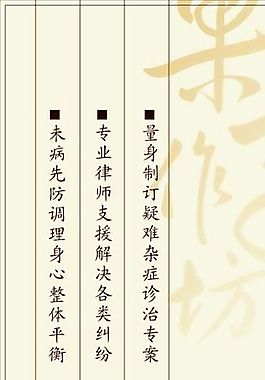 ■量身制订疑难杂症诊治专案
■专业律师支援解决各类纠纷
■未病先防调理身心整体平衡
作坊